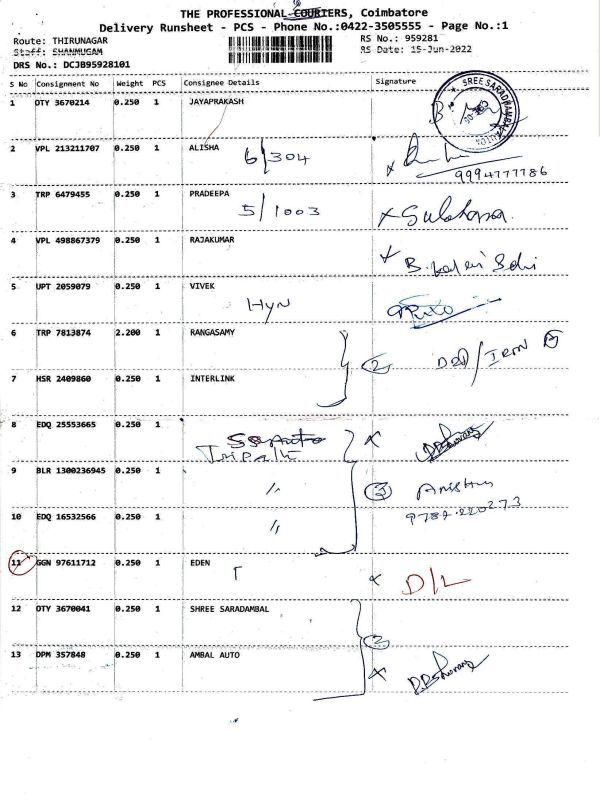 THE PROFESSIONAL COURIERS, Coimbatore
Delivery Runsheet - PCS - Phone No.:0422-3505555 - Page No.:1
Route: THIRUNAGAR RS No.: 959281
Staff: SHANMUGAM RS Date: 15-Jun-2022
DRS No.: DCJB95928101
S No Consignment No Weight PCS Consignee Details Signature
SREE SARADHAMBAL
1 OTY 3670214 0.250 1 JAYAPRAKASH
2 VPL 213211707 0.250 1 ALISHA
6/304
9994777786
3 TRP 6479455 0.250 1 PRADEEPA
5/1003 x Sulohana
4 VPL 498867379 0.250 1 RAJAKUMAR
5 UPT 2059079 0.250 1 VIVEK
Hyn
6 TRP 7813874 2.200 1 RANGASAMY
2
7 HSR 2409860 0.250 1 INTERLINK
8 EDQ 25553665 0.250 1
9 BLR 1300236945 0.250 1 "
3
10 EDQ 16532566 0.250 1 "
11 GGN 97611712 0.250 1 EDEN
x D/L
12 OTY 3670041 0.250 1 SHREE SARADAMBAL
13 DPM 357848 0.250 1 AMBAL AUTO
x